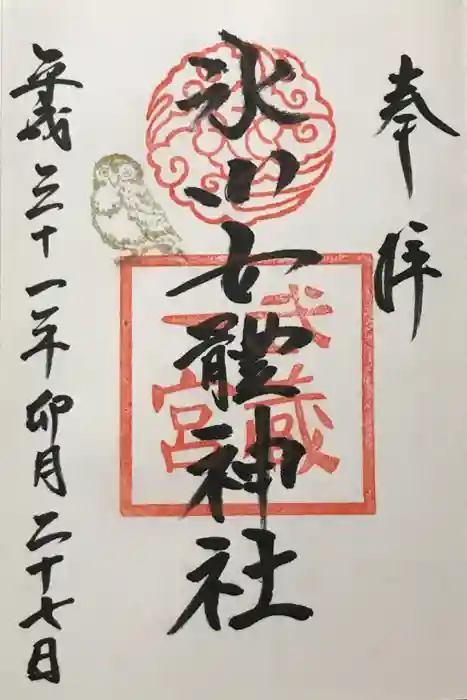 奉拝
氷川女體神社
武蔵
一宮
平成三十一年卯月二十七日